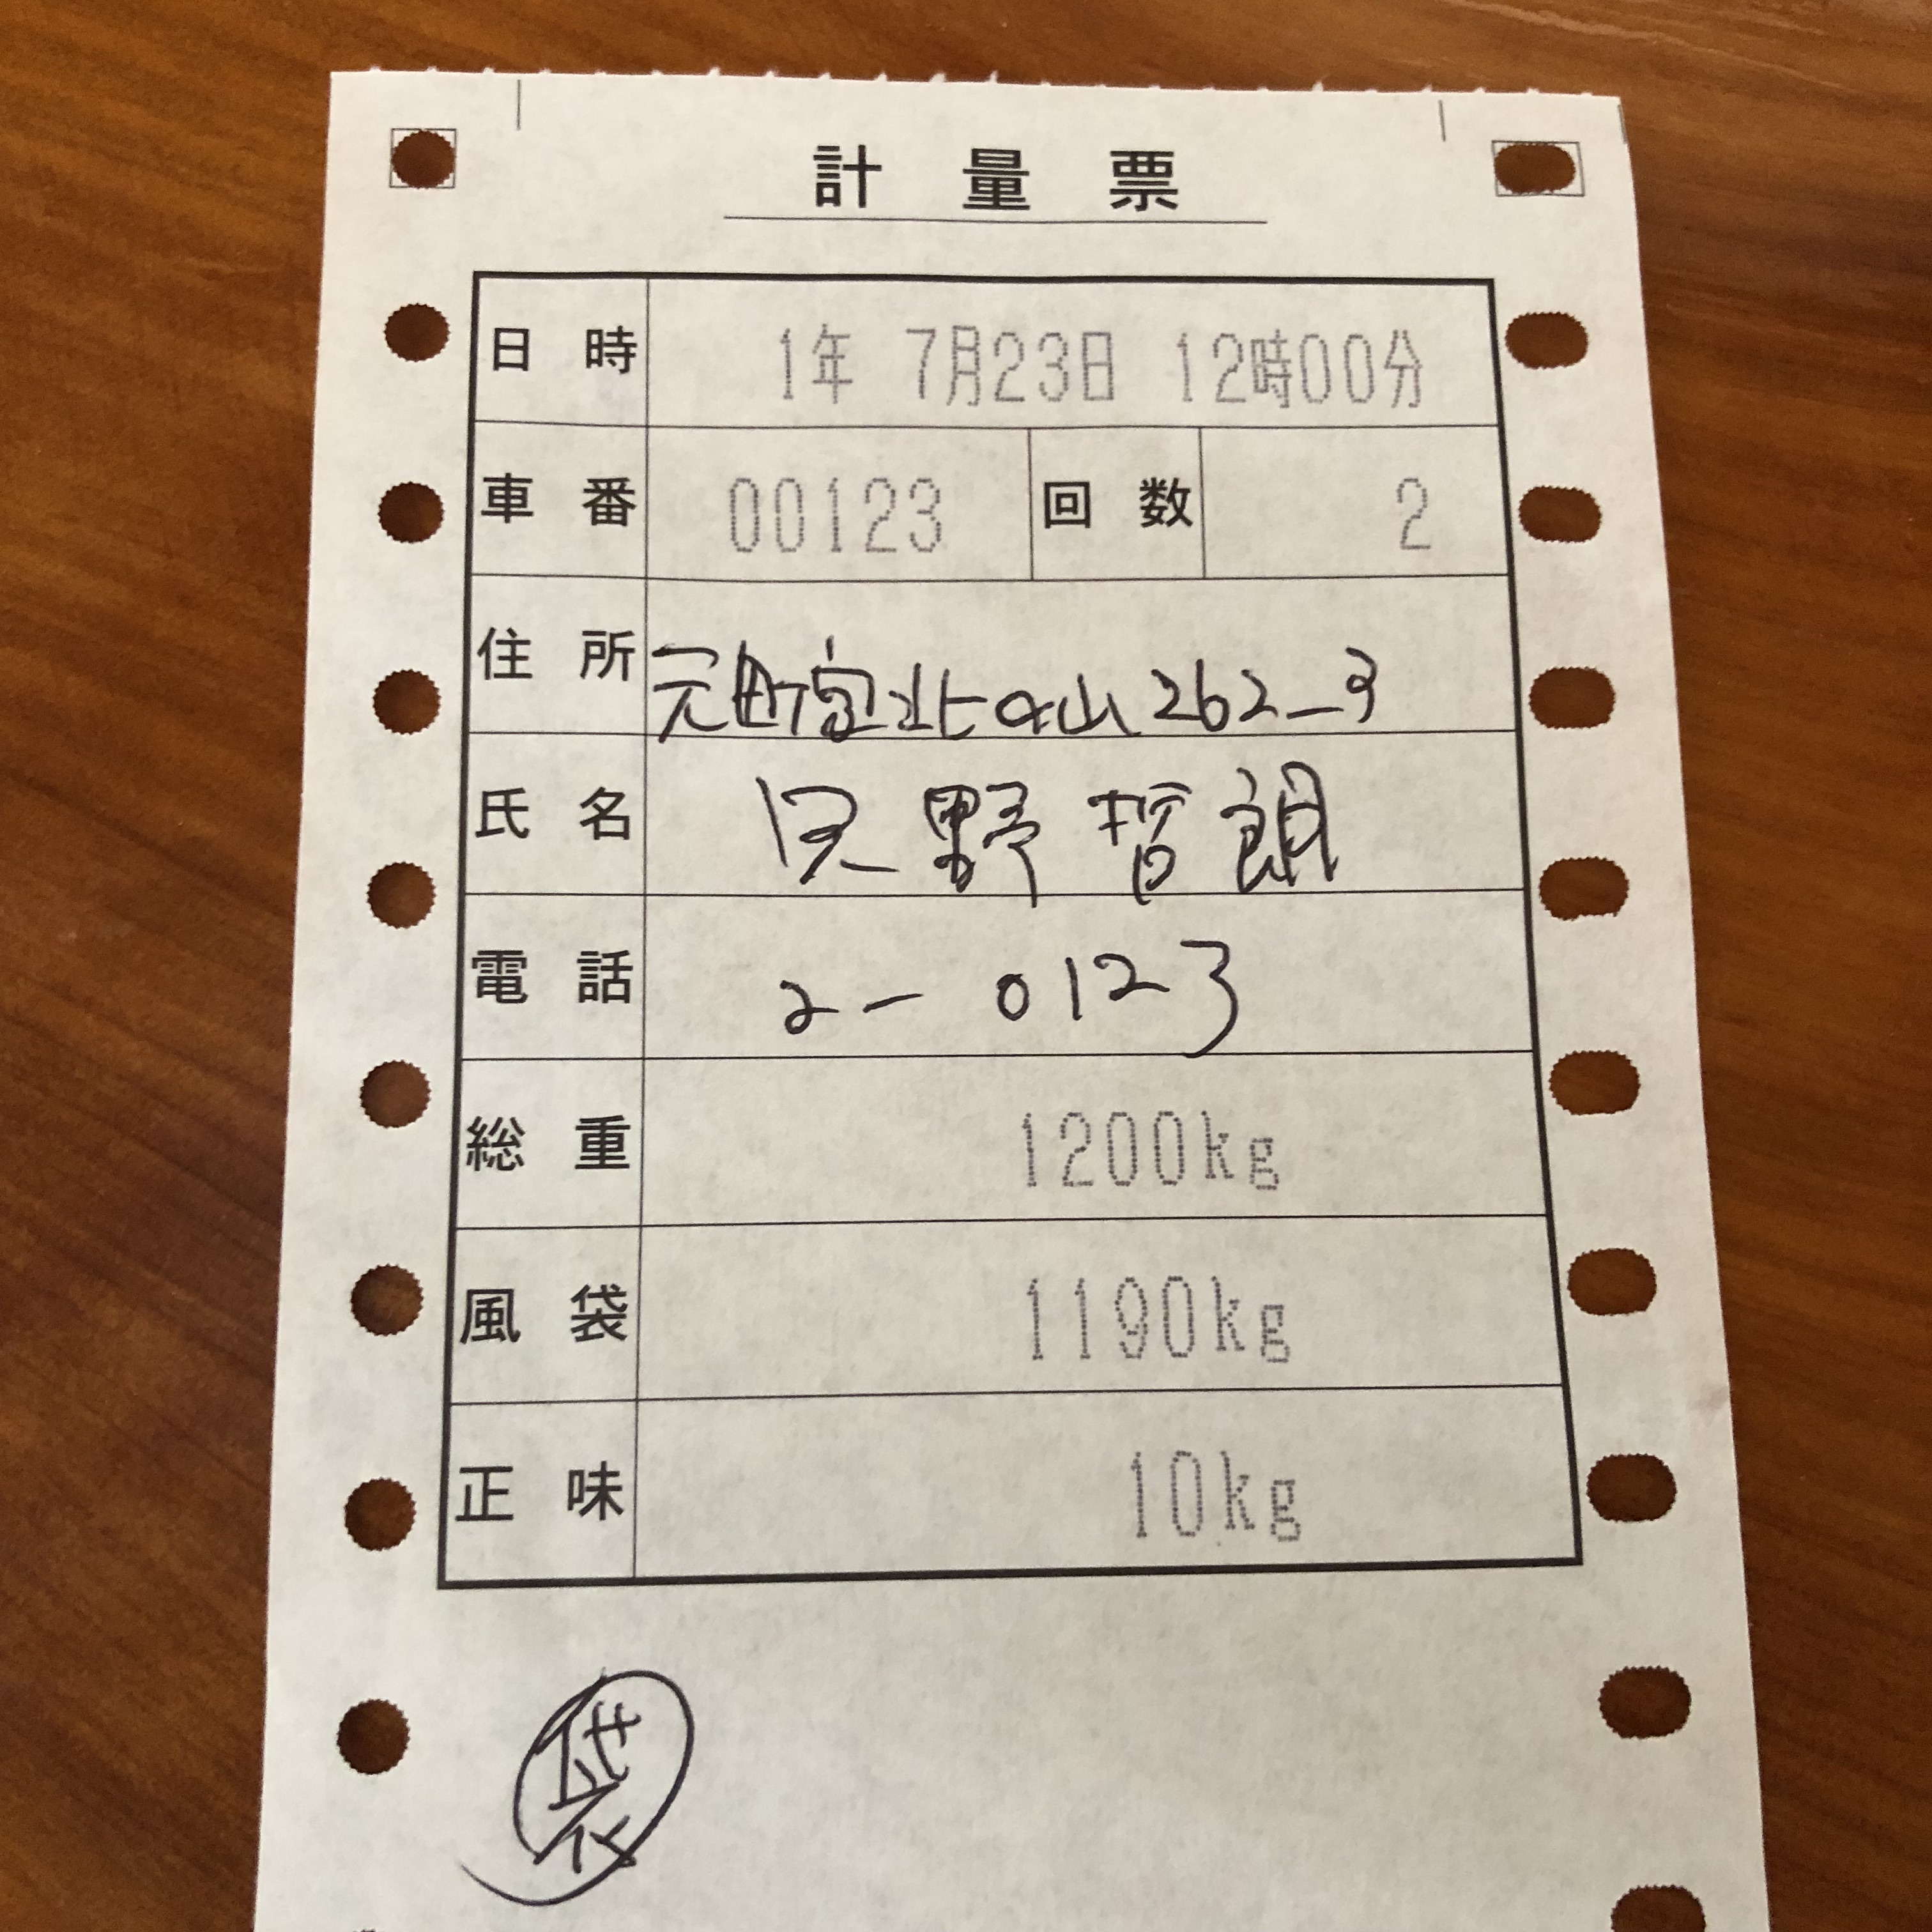 計量票
日時 1年 7月23日 12時00分
車番 00123 回数 2
住所 元町字北山262-3
氏名 只野哲朗
電話 2-0123
総重 1200kg
風袋 1190kg
正味 10kg
袋